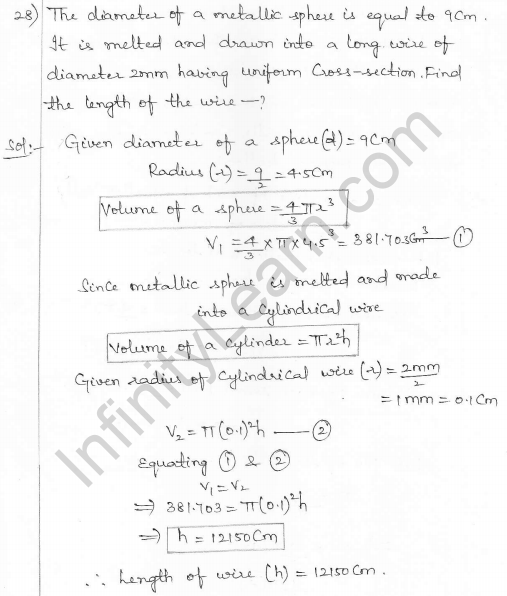 28) The diameter of a metallic sphere is equal to 9Cm.
It is melted and drawn into a long wire of
diameter 2mm having uniform Cross-section. Find
the length of the wire —?
Sol:- Given diameter of a sphere (d) = 9Cm
Radius (r) = 9/2 = 4.5Cm
Volume of a sphere = 4/3 πr³
V₁ = 4/3 × π × 4.5³ = 381.703Cm³ — ①
Since metallic sphere is melted and made
into a Cylindrical wire
Volume of a Cylinder = πr²h
Given radius of Cylindrical wire (r) = 2mm/2
= 1mm = 0.1Cm
V₂ = π(0.1)²h — ②
Equating ① & ②
V₁ = V₂
⇒ 381.703 = π(0.1)²h
⇒ h = 12150Cm
∴ Length of wire (h) = 12150Cm.
InfinityLearn.com